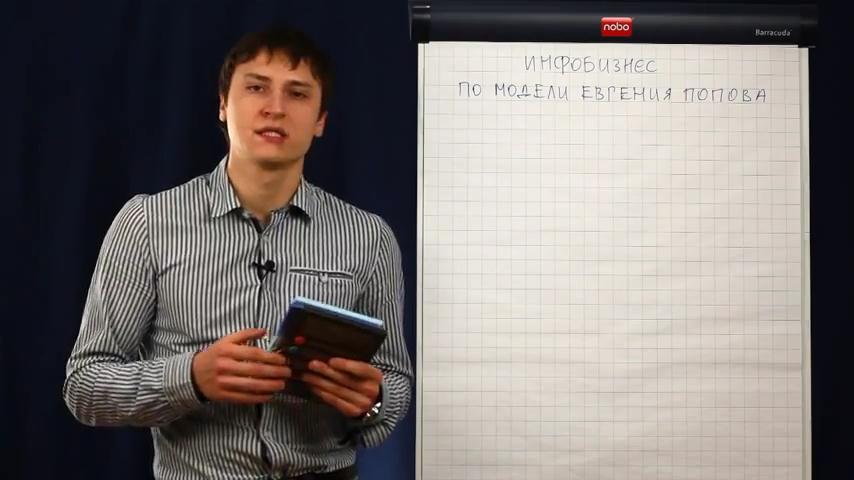 nobo
Barracuda™
ИНФОБИЗНЕС
ПО МОДЕЛИ ЕВГЕНИЯ ПОПОВА